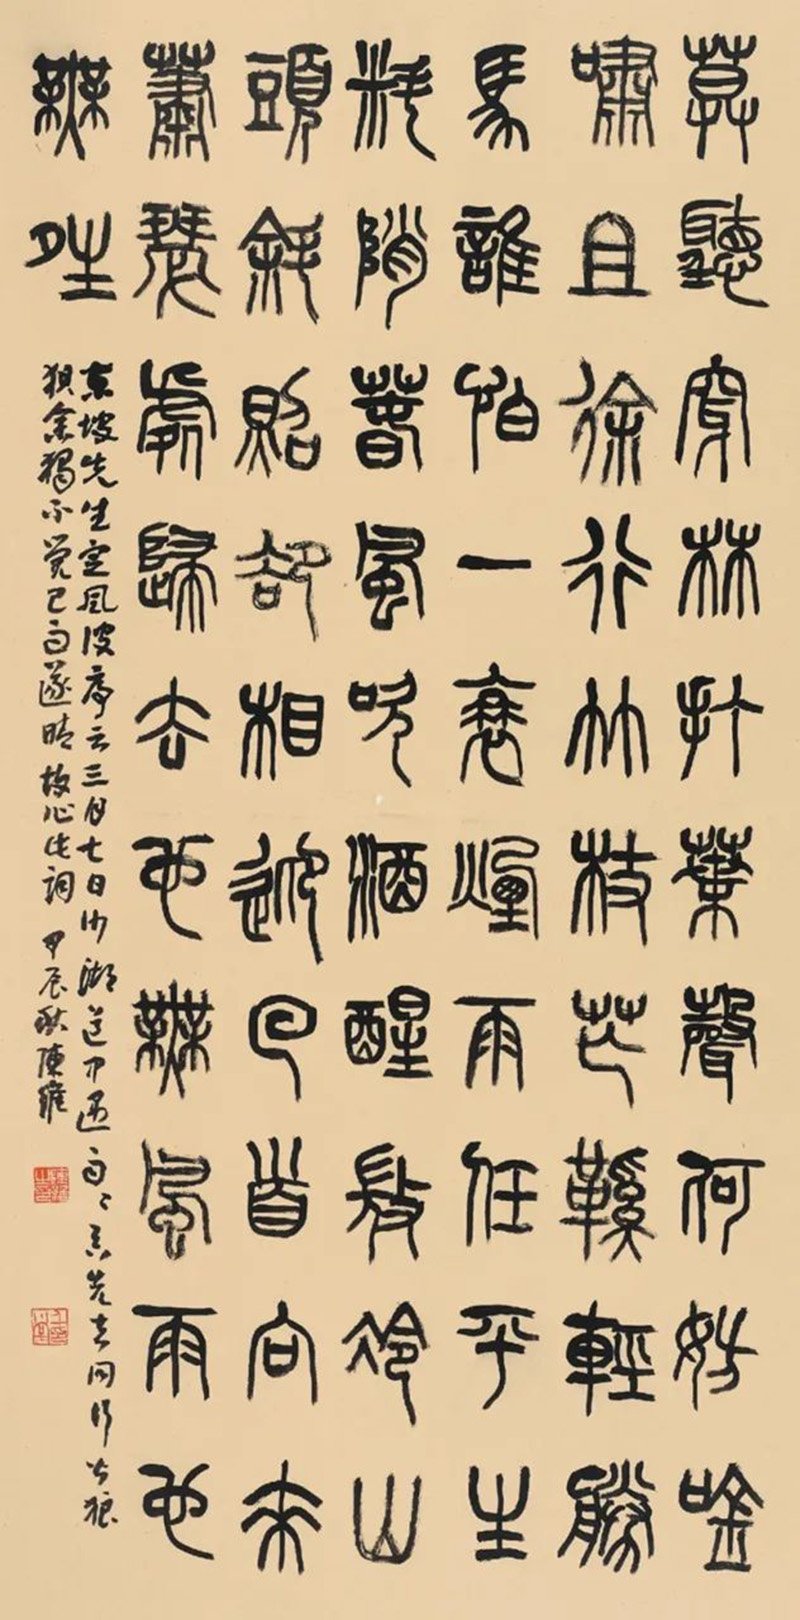 莫聽穿林打葉聲何妨唫
嘯且徐行竹枝芒鞵輕勝
馬誰怕一蓑煙雨任平生
料陗春風吹酒醒微冷山
頭斜照卻相迎回首向來
蕭瑟處歸去也無風雨也
無夝
東坡先生定風波序云三月七日沙湖道中遇雨〻具先去同行皆狼
狽余獨不覺已而遂晴故作此詞 甲辰秋陳維